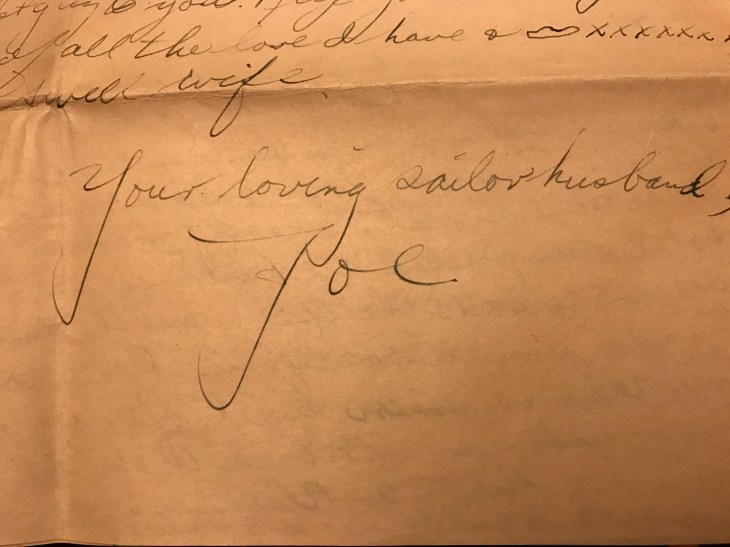 you.
all the love I have & xxxxxxx
swell wife
Your loving sailor husband,
Joe